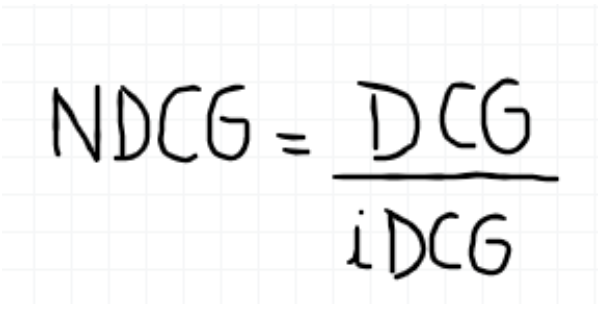 NDCG = DCG
iDCG